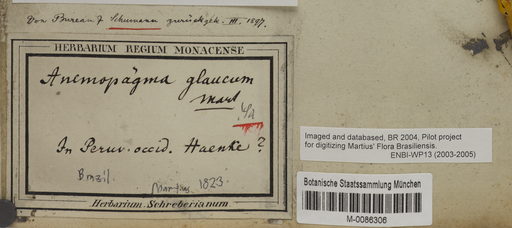 Von Bureau & Schumann zurückgek. III. 1897.
HERBARIUM REGIUM MONACENSE
Anemopägma glaucum
Mart
In Peruv. occid. Haenke ?
Brazil.
Martius 1823.
Herbarium Schreberianum
Imaged and databased, BR 2004, Pilot project
for digitizing Martius' Flora Brasiliensis.
ENBI-WP13 (2003-2005)
Botanische Staatssammlung München
M-0086306